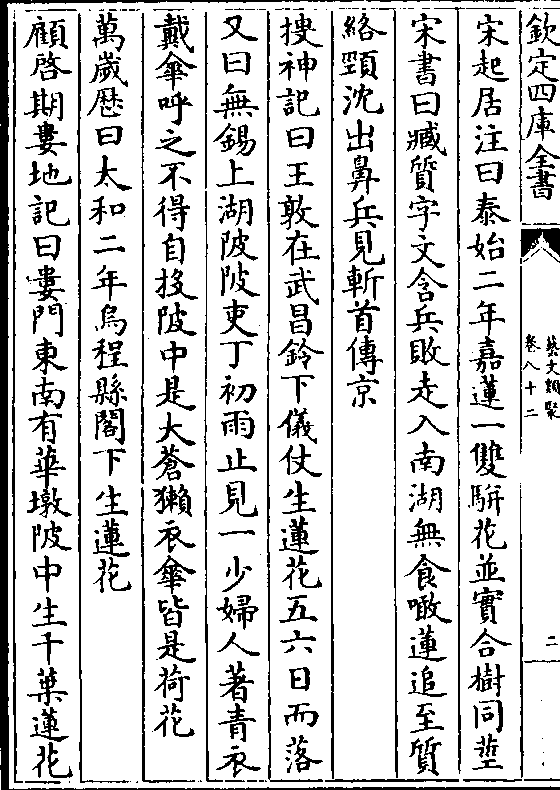 欽定四庫全書
藝文類聚
卷八十二
二
宋起居注曰泰始二年嘉蓮一雙駢花並實合樹同莖
宋書曰臧質字文含兵敗走入南湖無食噉蓮追至質
絡頸沈出鼻兵見斬首傳京
搜神記曰王敦在武昌鈴下儀仗生蓮花五六日而落
又曰無錫上湖陂陂吏丁初雨止見一少婦人著青衣
戴傘呼之不得自投陂中是大蒼獺衣傘皆是荷花
萬歲歷曰太和二年烏程縣閣下生蓮花
顧啓期婁地記曰婁門東南有華墩陂中生千葉蓮花